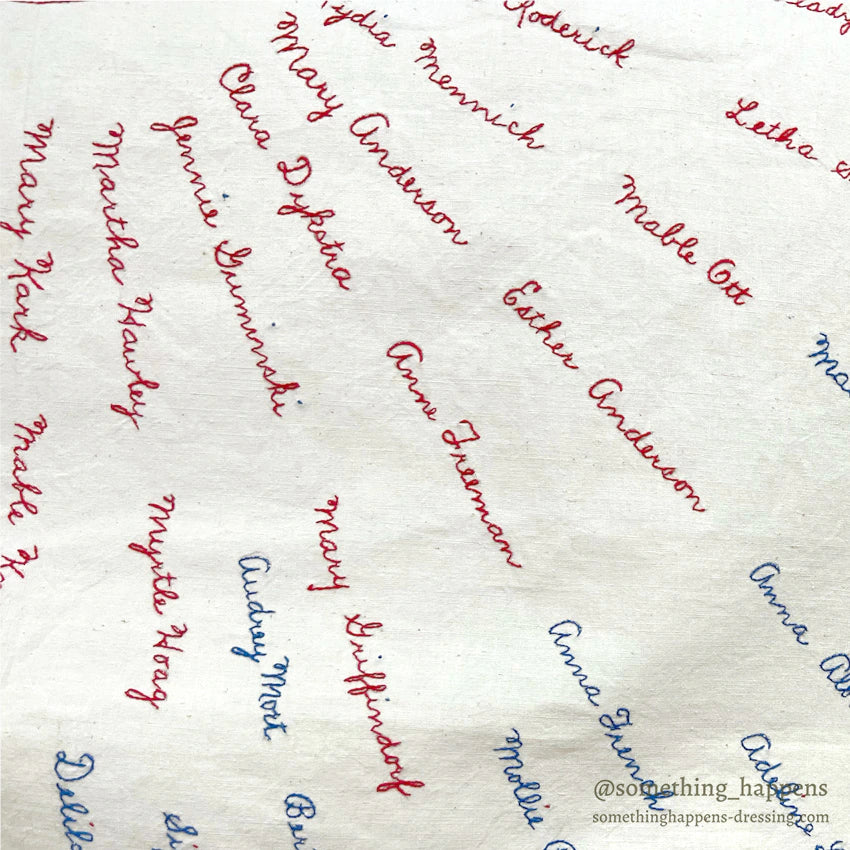 Lydia Mennich
Roderick
Mary Anderson
Clara Dykstra
Jennie Griminski
Martha Hawley
Mary Kark
Letha
Mable Ott
Esther Anderson
Anne Freeman
Mable
Myrtle Hoag
Mary Griffindorf
Audrey Mort
Anna French
Anna
Mollie
Adeline
@something_happens
somethinghappens-dressing.com